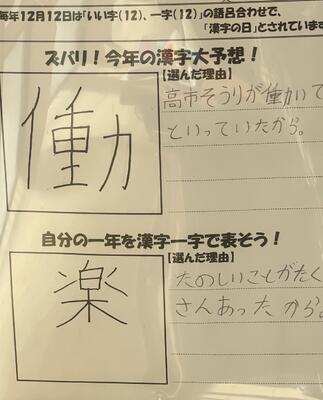 毎年12月12日は「いい字(12)、一字(12)」の語呂合わせで、
「漢字の日」とされています
ズバリ！今年の漢字大予想！
【選んだ理由】
働
高市そうりが働いて
といっていたから。
自分の一年を漢字一字で表そう！
【選んだ理由】
楽
たのしいことがたく
さんあったから。